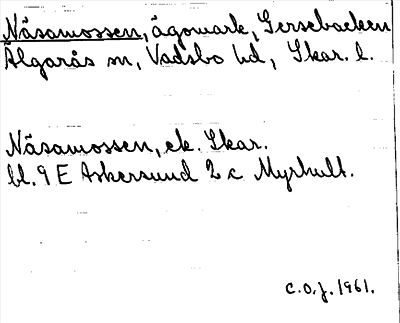 Näsamossen, ägomark, Gersebacken
Älgarås sn, Vadsbo hd, Skar. l.
Näsamossen, ek. Skar.
bl. 9 E Askersund 2 c Myrhult.
C.O.J. 1961.